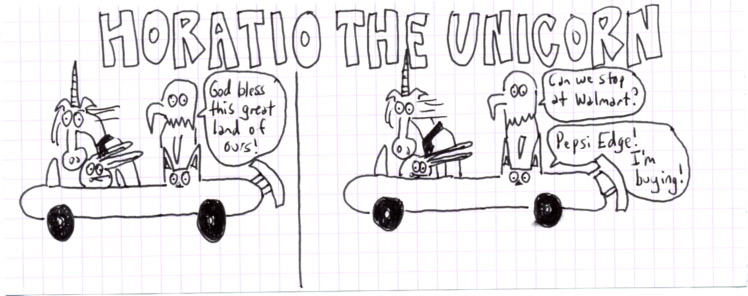 HORATIO THE UNICORN
God bless
this great
land of
ours!
Can we stop
at Walmart?
Pepsi Edge!
I'm
buying!